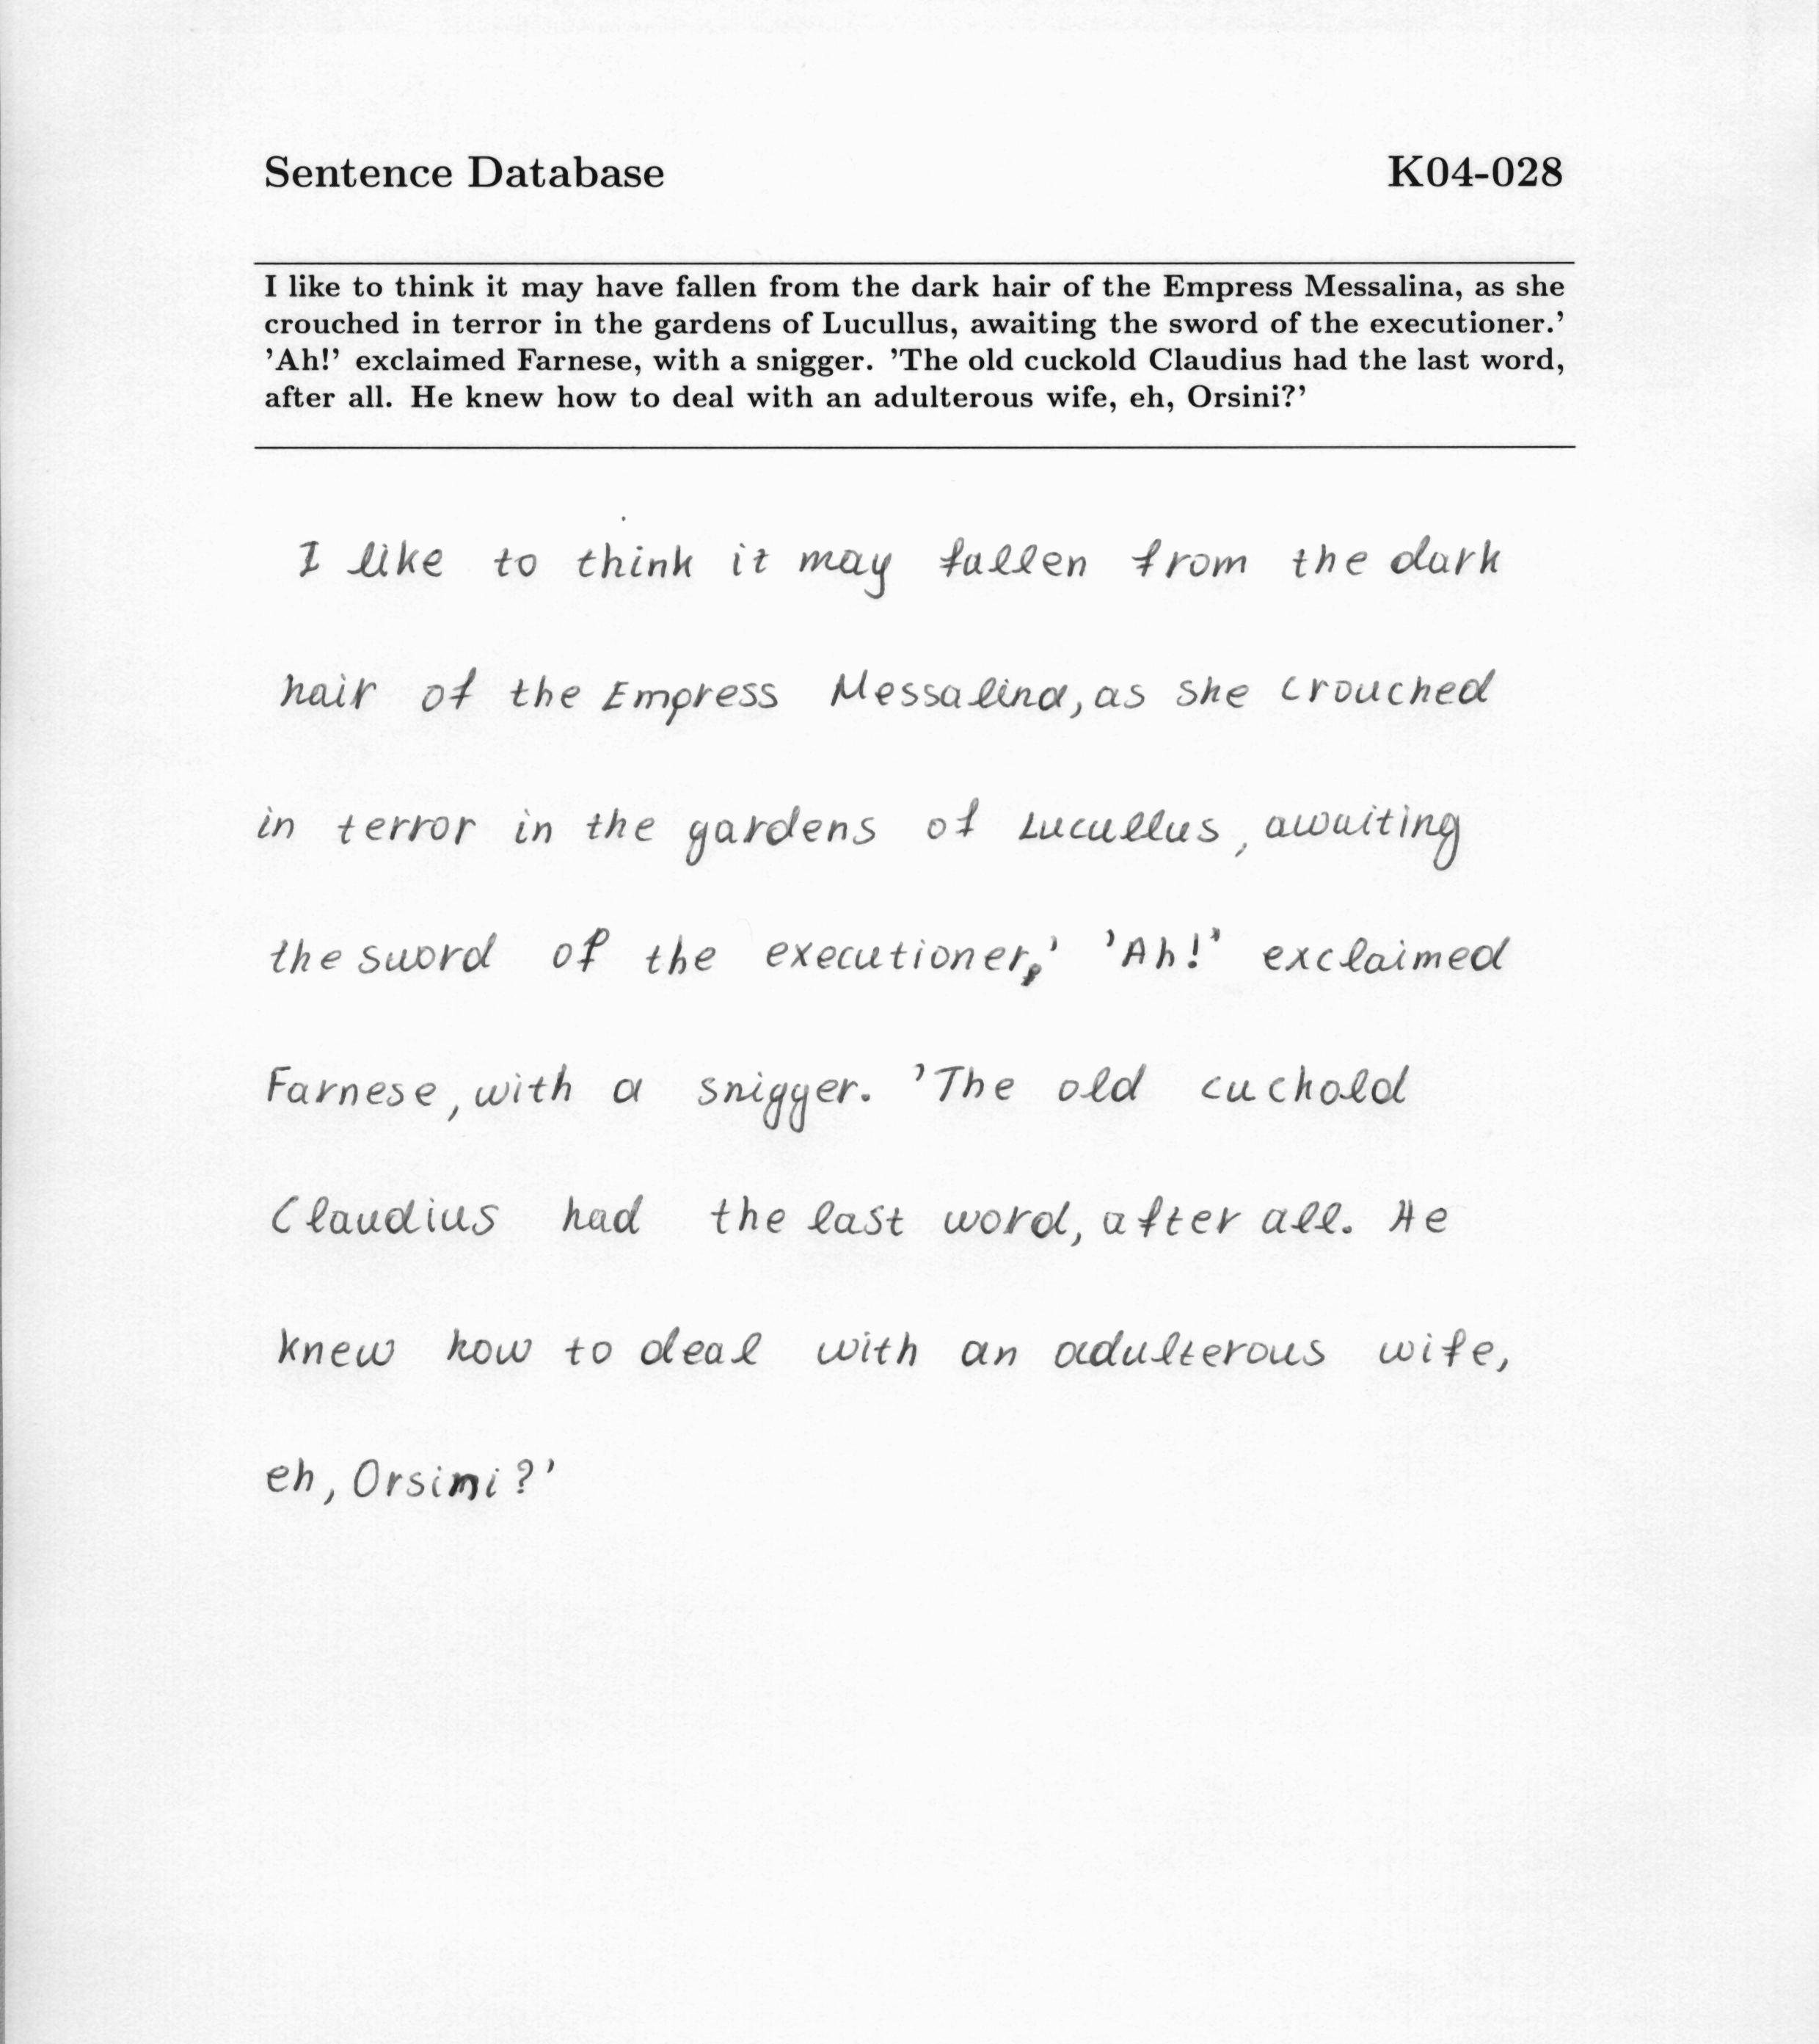 Sentence Database K04-028
I like to think it may have fallen from the dark hair of the Empress Messalina, as she
crouched in terror in the gardens of Lucullus, awaiting the sword of the executioner.’
’Ah!’ exclaimed Farnese, with a snigger. ’The old cuckold Claudius had the last word,
after all. He knew how to deal with an adulterous wife, eh, Orsini?’
I like to think it may fallen from the dark
hair of the Empress Messalina, as she crouched
in terror in the gardens of Lucullus, awaiting
the sword of the executioner,’ ’Ah!’ exclaimed
Farnese, with a snigger. ’The old cuckold
Claudius had the last word, after all. He
knew how to deal with an adulterous wife,
eh, Orsini?’